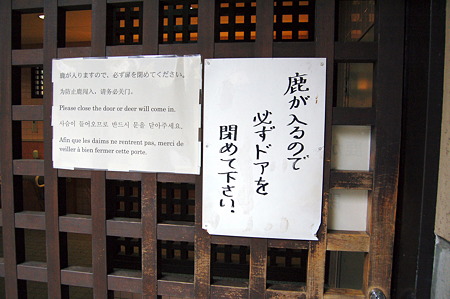 鹿が入りますので、必ず扉を閉めてください。
为防止鹿闯入，请务必关门。
Please close the door or deer will come in.
사슴이 들어오므로 반드시 문을 닫아주세요.
Afin que les daims ne rentrent pas, merci de
veiller à bien fermer cette porte.
鹿が入るので
必ずドアを
閉めて下さい。